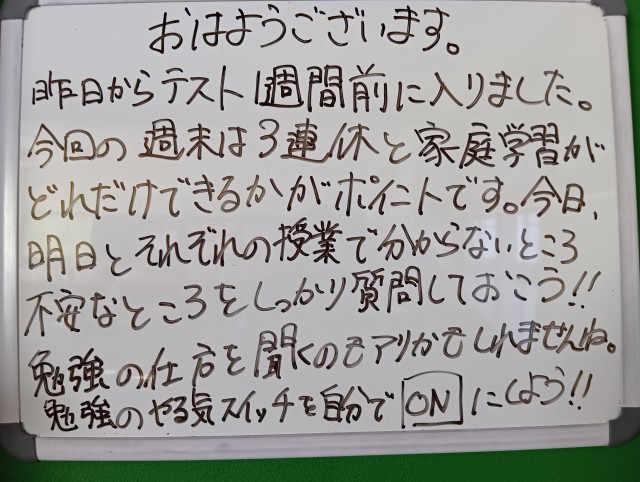 おはようございます。
昨日からテスト1週間前に入りました。
今回の週末は3連休と家庭学習が
どれだけできるかがポイントです。今日、
明日とそれぞれの授業で分からないところ
不安なところをしっかり質問しておこう!!
勉強の仕方を聞くのもアリかもしれませんね。
勉強のやる気スイッチを自分でONにしよう!!